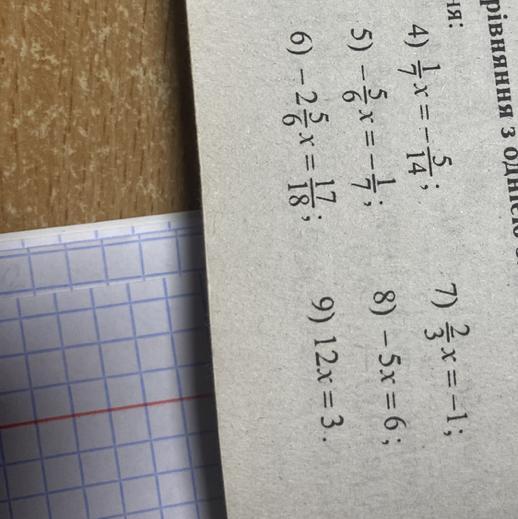 рівняння з однією
ня:
4) \frac{1}{7}x = -\frac{5}{14};
5) -\frac{5}{6}x = -\frac{1}{7};
6) -2\frac{5}{6}x = \frac{17}{18};
7) \frac{2}{3}x = -1;
8) -5x = 6;
9) 12x = 3.